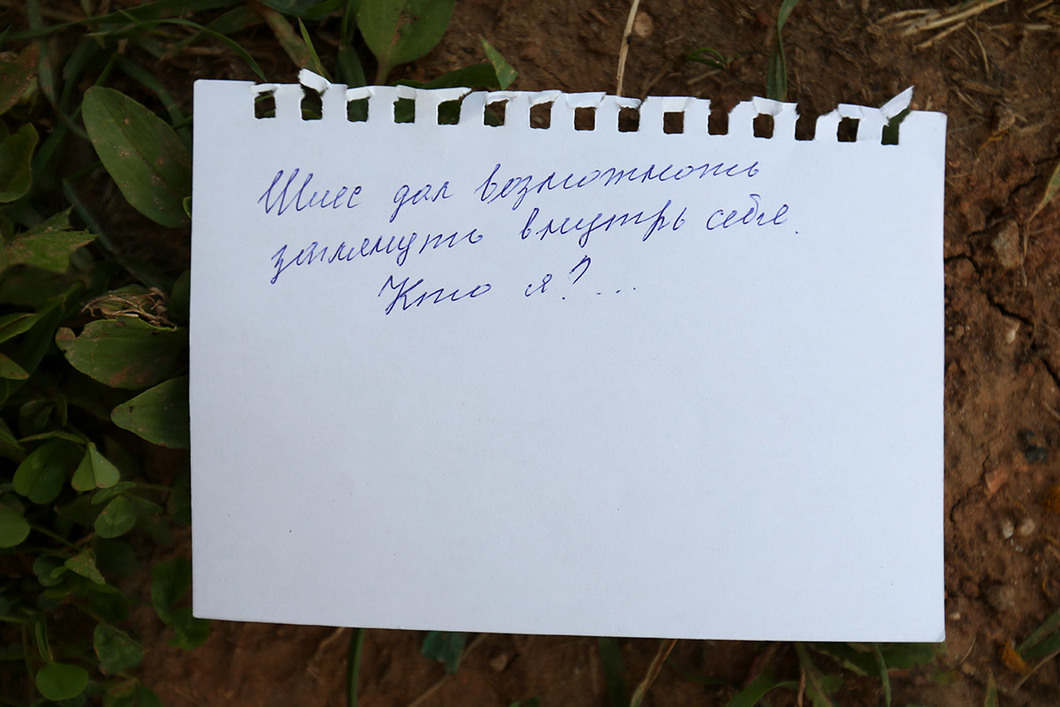 Шлес дал возможность
заглянуть внутрь себя.
Кто я? ...